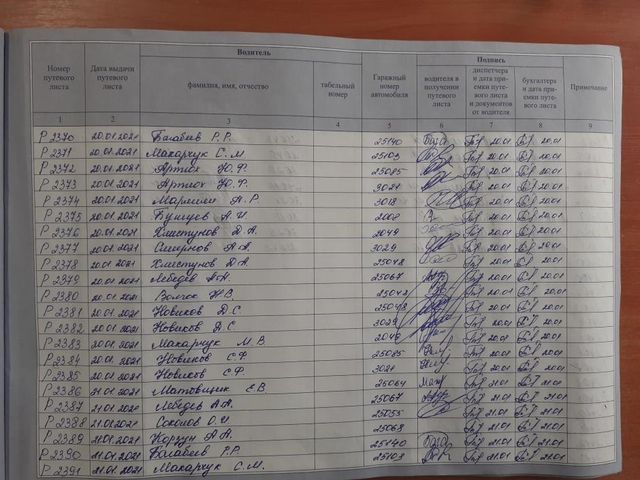 Номер путевого листа
Дата выдачи путевого листа
Водитель
фамилия, имя, отчество
табельный номер
Гаражный номер автомобиля
Подпись
водителя в получении путевого листа
диспетчера и дата приемки путевого листа и документов от водителя
бухгалтера и дата приемки путевого листа
Примечание
1 2 3 4 5 6 7 8 9
Р 2370 20.01.2021 Багабиев Р.Р. 25140 20.01 20.01
Р 2371 20.01.2021 Макарчук С.М 25103 20.01 20.01
Р 2372 20.01.2021 Артюх Ю.Ф. 25085 20.01 20.01
Р 2373 20.01.2021 Артюх Ю.Ф. 3021 20.01 20.01
Р 2374 20.01.2021 А.Р. 3018 20.01 20.01
Р 2375 20.01.2021 А.И 2008 20.01 20.01
Р 2376 20.01.2021 Хлистунов Д.А. 2049 20.01 20.01
Р 2377 20.01.2021 Смирнов А.А. 3029 20.01 20.01
Р 2378 20.01.2021 Хлистунов Д.А. 25048 20.01 20.01
Р 2379 20.01.2021 Лебедев А.А. 25067 20.01 20.01
Р 2380 20.01.2021 Волков Н.В. 25042 20.01 20.01
Р 2381 20.01.2021 Новиков Д.С 25048 20.01 20.01
Р 2382 20.01.2021 Новиков Д.С 3029 20.01 20.01
Р 2383 20.01.2021 Макарчук М.В 2049 20.01 20.01
Р 2384 20.01.2021 Новиков С.Ф. 25085 20.01 20.01
Р 2385 20.01.2021 Новиков С.Ф 3021 20.01 20.01
Р 2386 21.01.2021 Е.В 25064 21.01 21.01
Р 2387 21.01.2021 Лебедев А.А. 25067 21.01 21.01
Р 2388 21.01.2021 Соколов О.И. 25055 21.01 21.01
Р 2389 21.01.2021 Корзун А.А. 25068 21.01 21.01
Р 2390 21.01.2021 Багабиев Р.Р. 25140 21.01 21.01
Р 2391 21.01.2021 Макарчук С.М. 25103 21.01 21.01